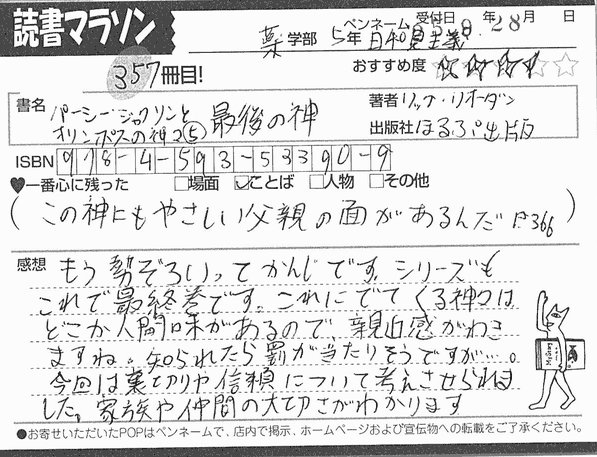 読書マラソン
ペンネーム 受付日 9年 28月 日
薬学部 5年 日和見主義
357冊目!
おすすめ度
書名 パーシー・ジャクソンと
オリンポスの神々⑤ 最後の神
著者 リック・リオーダン
出版社 ほるぷ出版
ISBN 978-4-593-53390-9
♥一番心に残った □場面 ☑ことば □人物 □その他
(この神にもやさしい父親の面があるんだ P.366)
感想 もう勢ぞろいってかんじです。シリーズも
これで最終巻です。これにでてくる神々は
どこか人間味があるので、親近感がわき
ますね。知られたら罰が当たりそうですが…。
今回は裏切りや信頼について考えさせられま
した。家族や仲間の大切さがわかります
●お寄せいただいたPOPはペンネームで、店内で掲示、ホームページおよび宣伝物への転載をご了承ください。